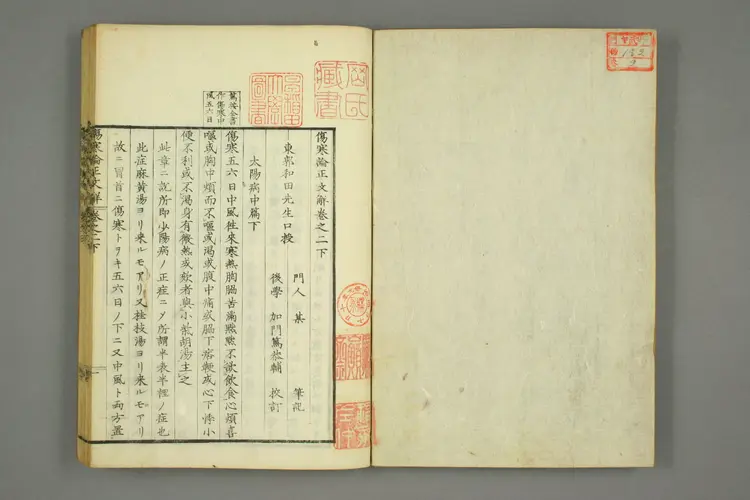 傷寒論正文解卷之二下
東郭和田先生口授
門人 某 筆記
後學 加門篤恭輔 挍訂
太陽病中篇下
傷寒五六日中風往來寒熱胸脇苦滿黙黙不欲飲食心煩喜
嘔或胸中煩而不嘔或渴或腹中痛或脇下痞鞕或心下悸小
便不利或不渴身有微熱或欬者與小柴胡湯主之
此章ニ說所即少陽病ノ正症ニメ所謂半表半裡ノ症也
此症麻黃湯ヨリ来ルモアリ又桂枝湯ヨリ来ルモアリ
故ニ冒首ニ傷寒トヲキ五六日ノ下ニ又中風ト両方置
篤按全書
作傷寒中
風五六日
傷寒論正文解 卷之二下
藏書